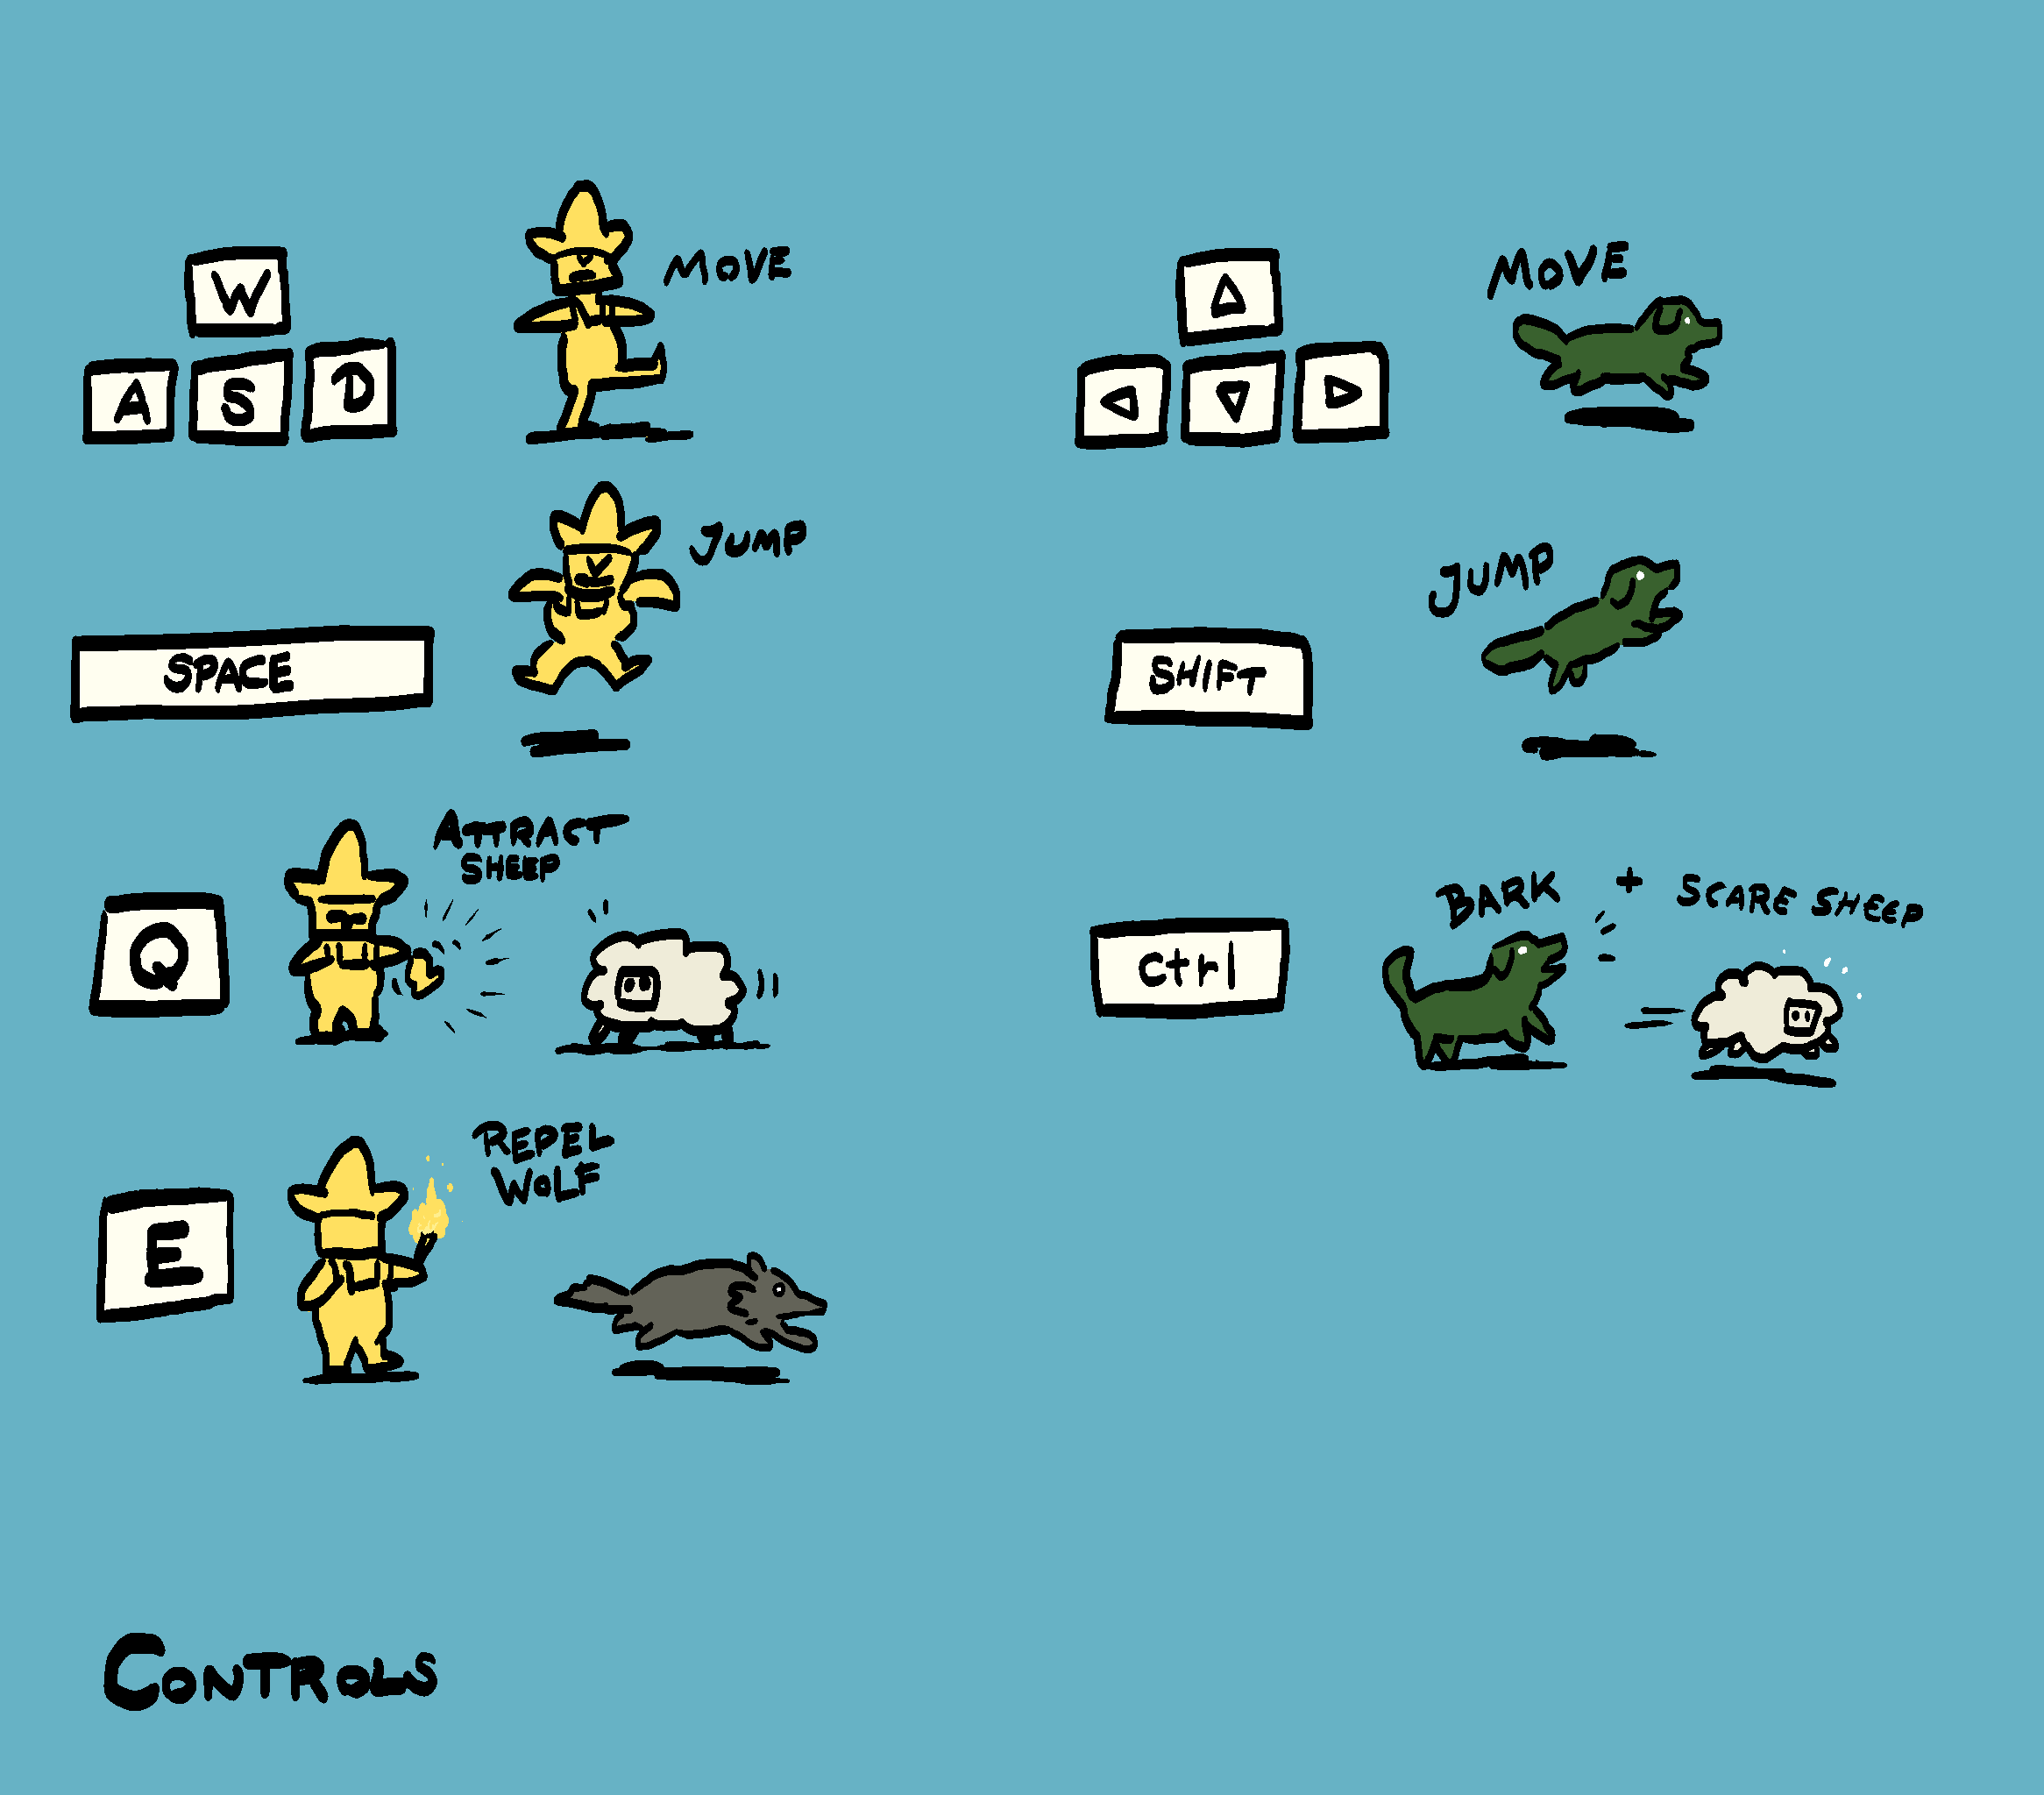 W
MOVE
A S D
SPACE
JUMP
Q
ATTRACT
SHEEP
E
REPEL
WOLF
MOVE
SHIFT
JUMP
ctrl
BARK + SCARE SHEEP
CONTROLS